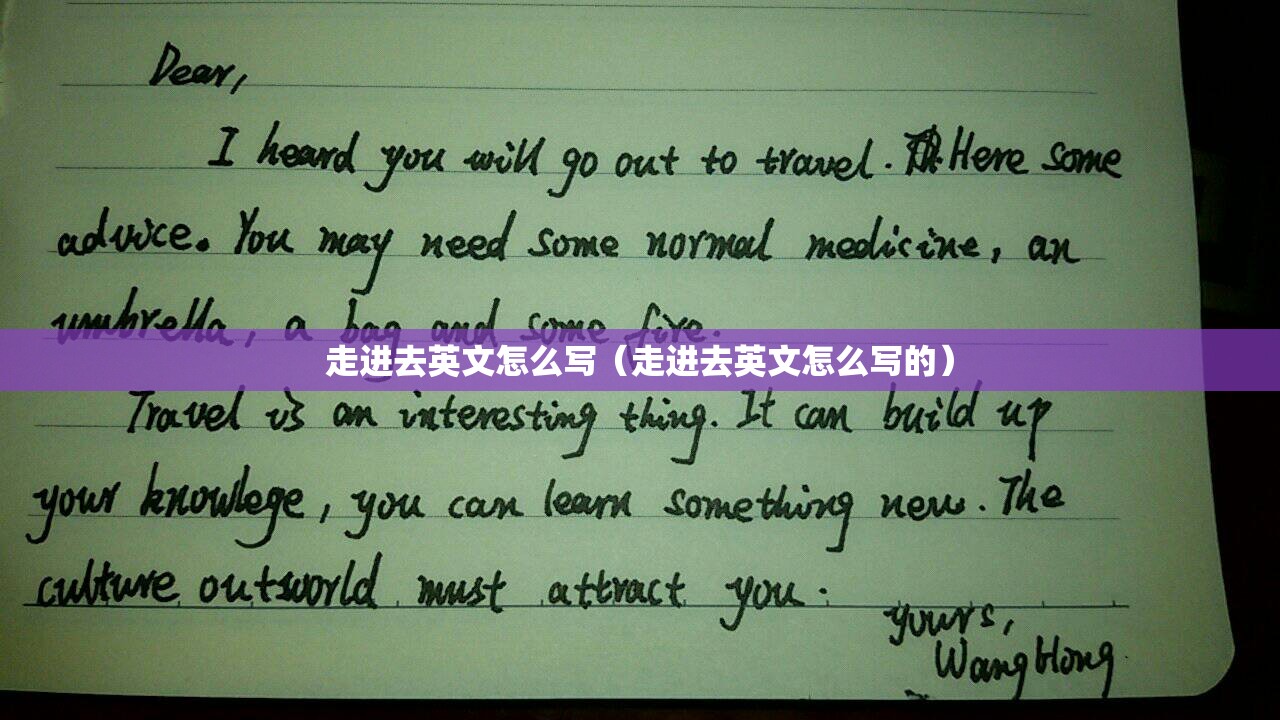 Dear,
I heard you will go out to travel. Here some
advice. You may need some normal medicine, an
umbrella, a bag and some fire.
走进去英文怎么写（走进去英文怎么写的）
Travel is an interesting thing. It can build up
your knowlege, you can learn something new. The
culture outsworld must attract you.
yours,
Wang Hong